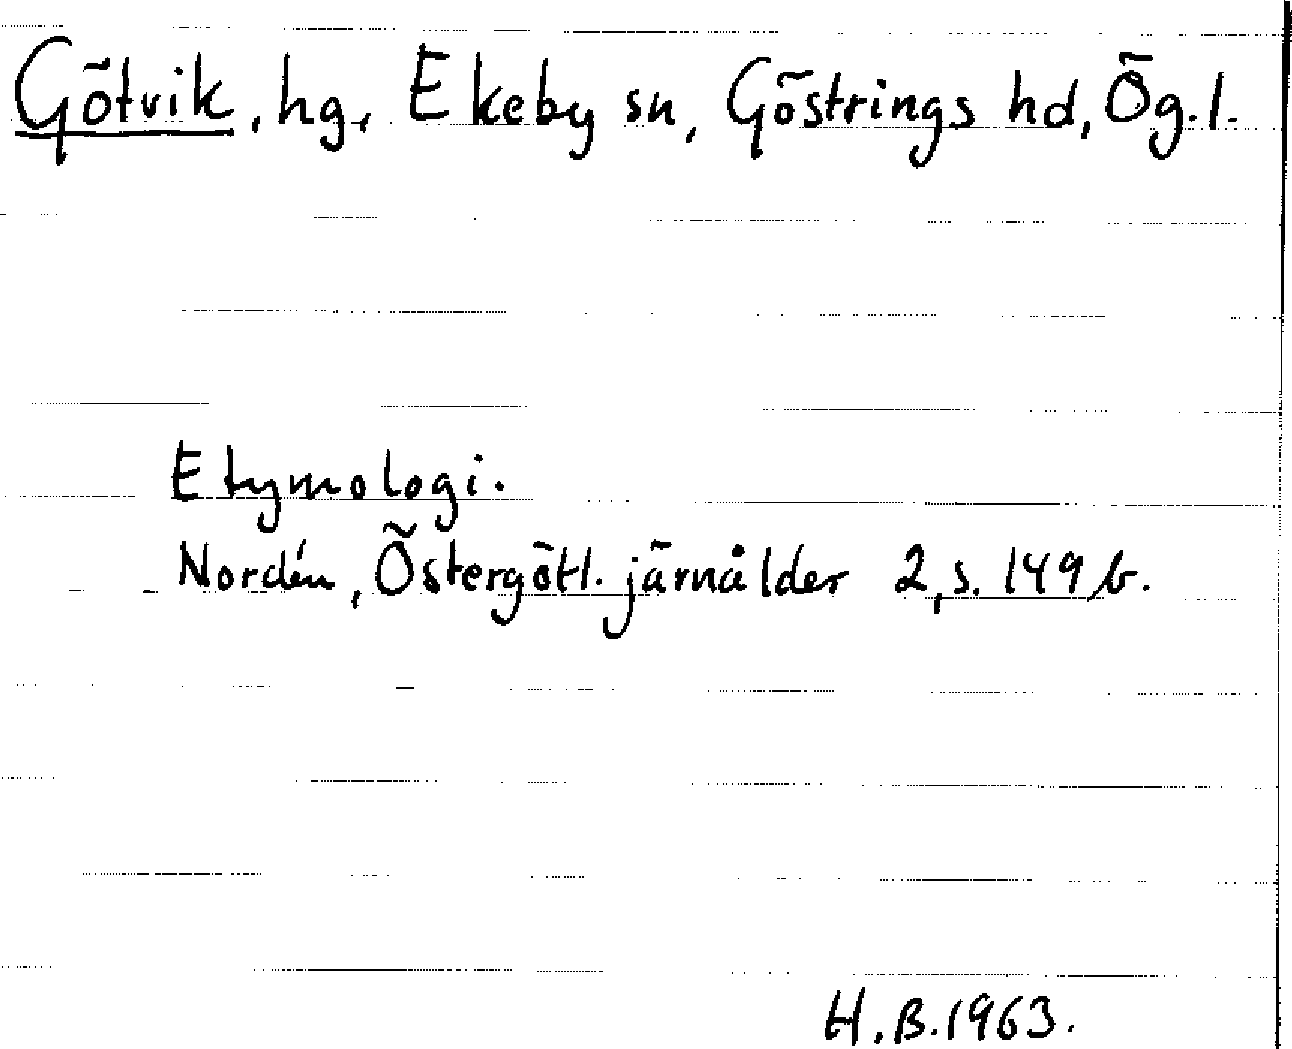 Götvik, hg, Ekeby sn, Göstrings hd, Ög.l.
Etymologi.
Nordén, Östergötl. järnålder 2, s. 149 b.
H.B. 1963.